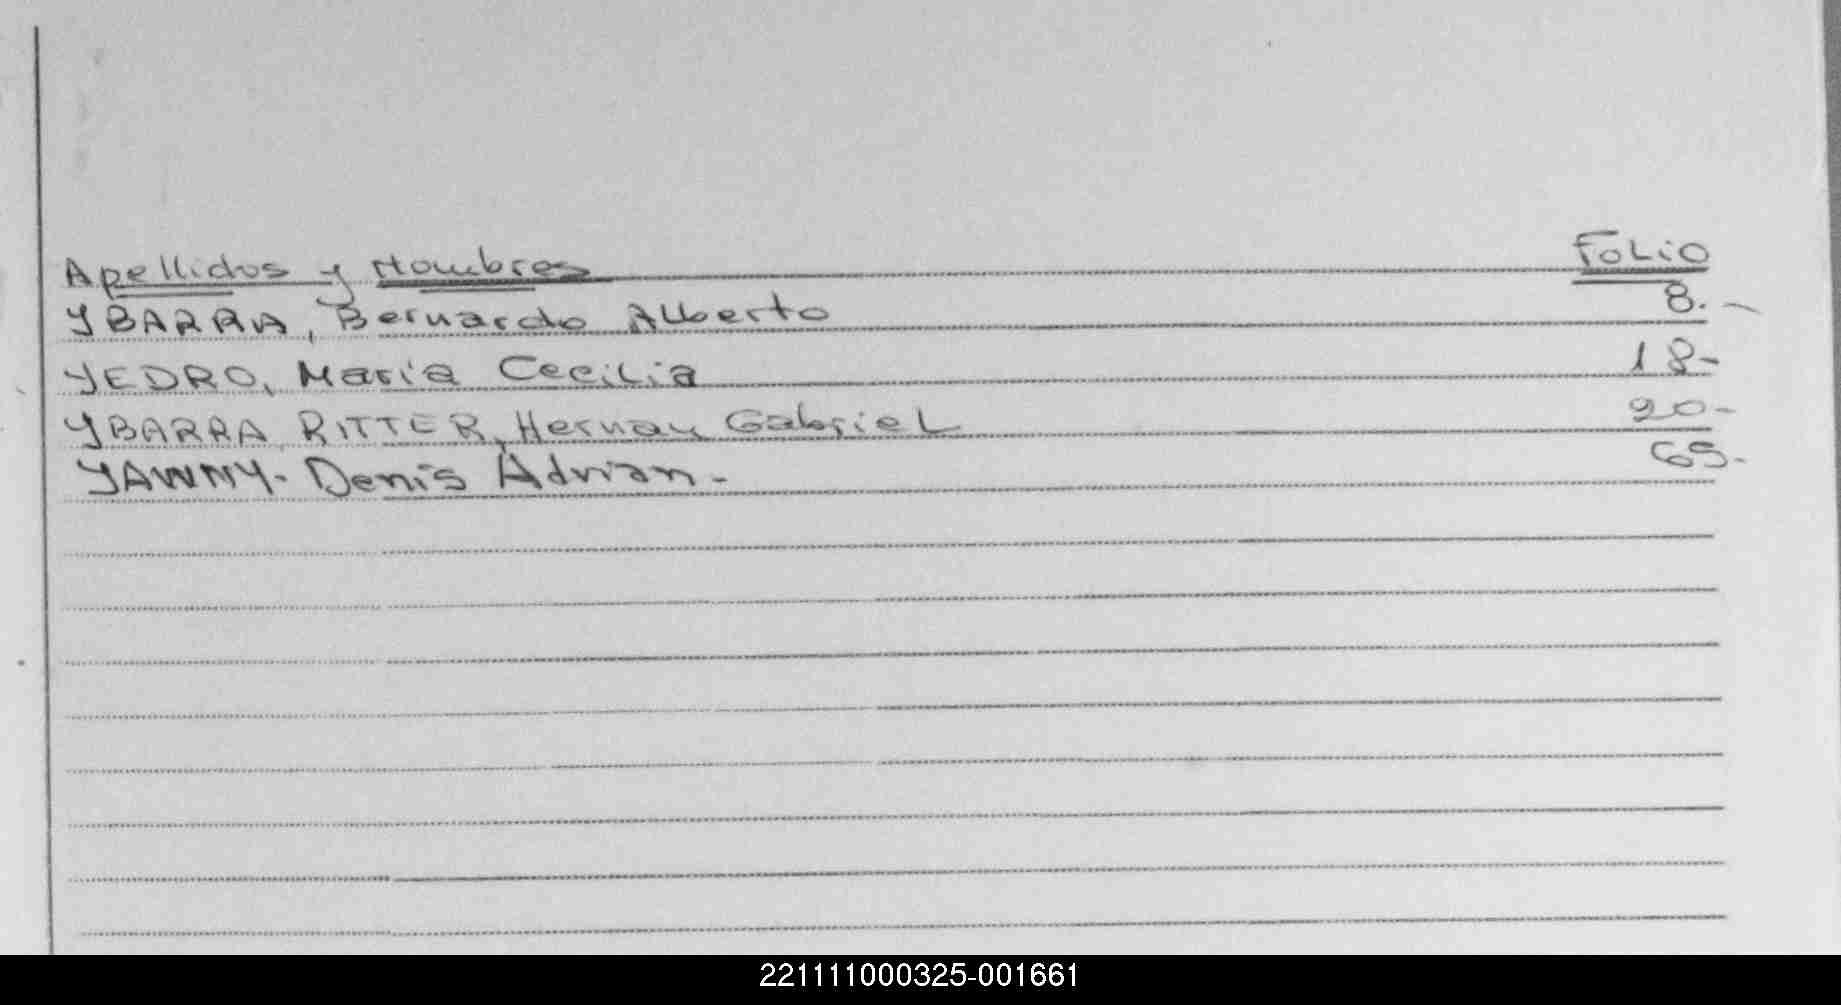 Apellidos y Nombres FOLIO
YBARRA, Bernardo Alberto 8.-
YEDRO, María Cecilia 18-
YBARRA RITTER, Hernan Gabriel 20-
YAWNY- Denis Adrian.- 65.-
221111000325-001661